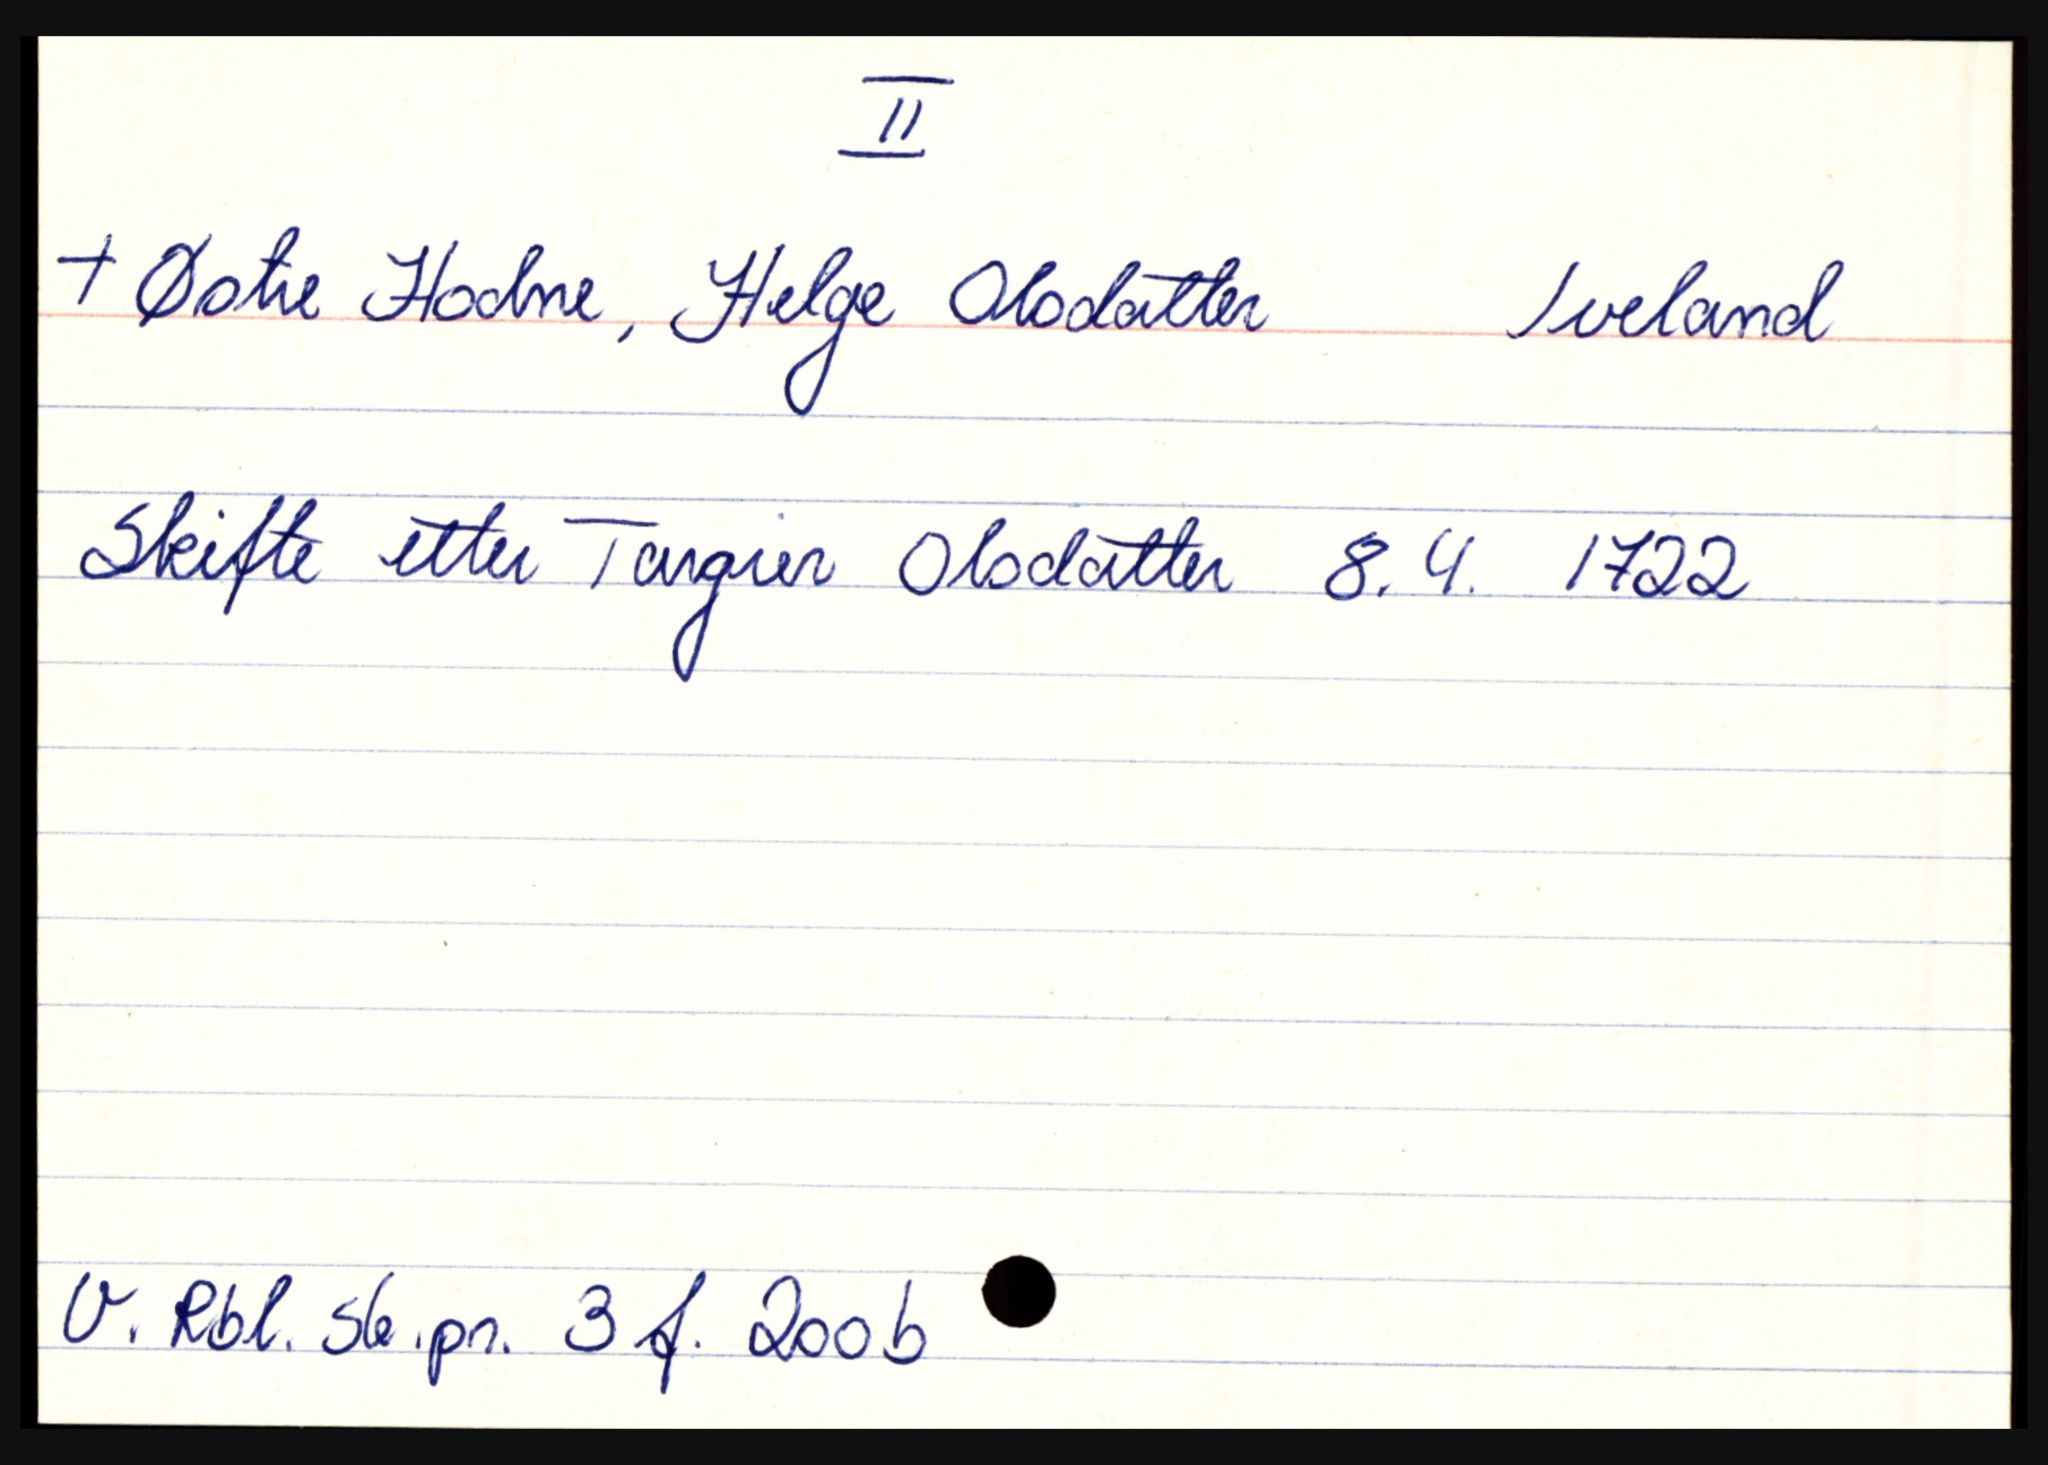 II
+ Østre Hodne, Helge Olsdatter Iveland
Skifte etter Targier Olsdatter 8.4. 1722
V. Rbl. sk.pr. 3 f. 200b